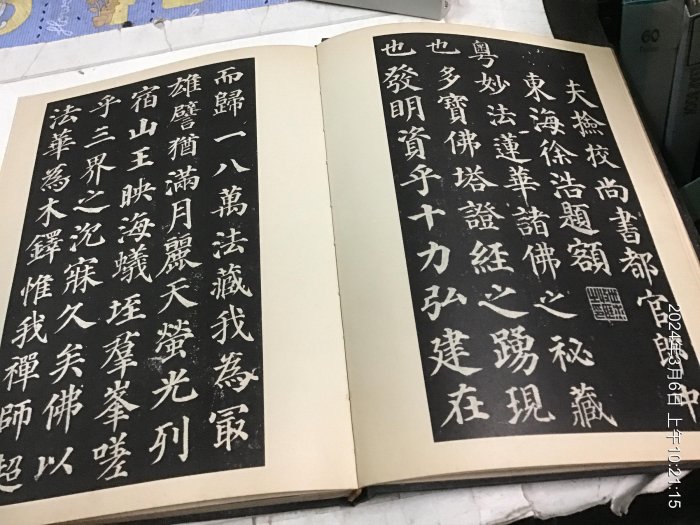 夫撿挍尚書都官郎中
東海徐浩題額
粤妙法蓮華諸佛之秘藏
也多寶佛塔證經之踴現
也發明資乎十力弘建在
而歸一八萬法藏我為冣
雄譬猶滿月麗天螢光列
宿山王映海蟻垤羣峯嗟
乎三界之沉寐久矣佛以
法華為木鐸惟我禪師超
60
2024年3月6日 上午10:21:15